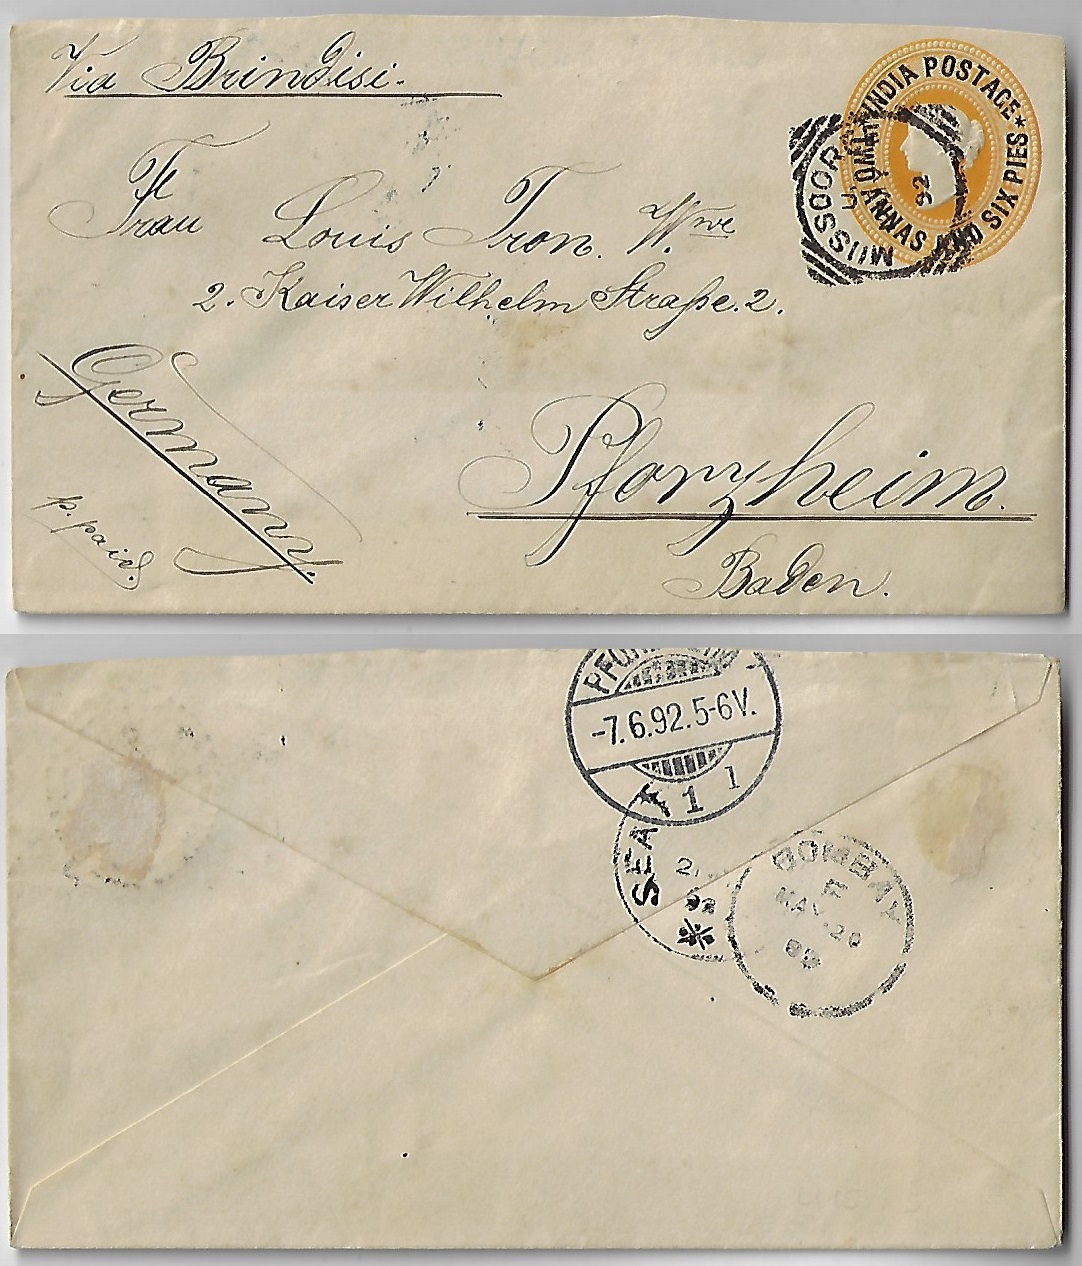 Via Brindisi.
INDIA POSTAGE * TWO ANNAS AND SIX PIES *
MUSSOOR
92
Frau Louis Tron. Wwe
2. Kaiser Wilhelm Straße. 2.
Germany
Pforzheim.
Baden.
p. paid.
-7.6.92.5-6V.
1 1
SEA
2
92
BOMBAY
MAY 20
92